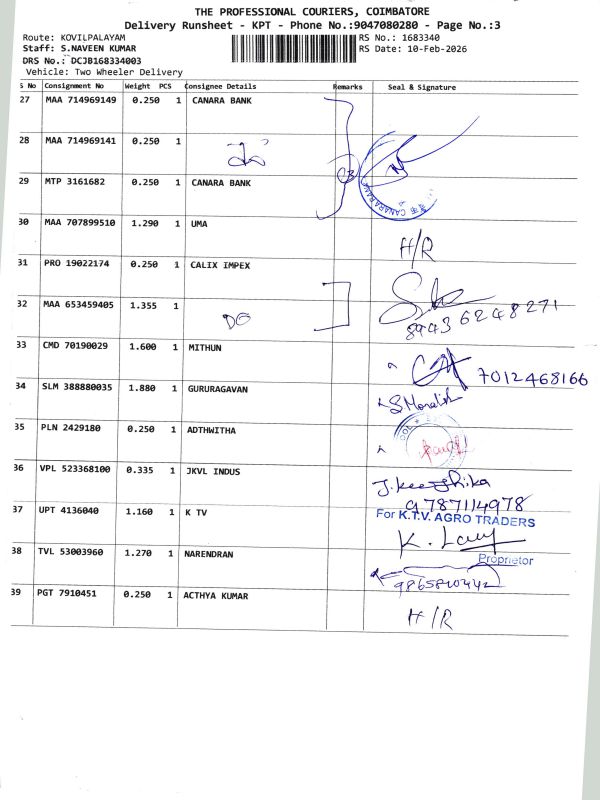 THE PROFESSIONAL COURIERS, COIMBATORE
Delivery Runsheet - KPT - Phone No.:9047080280 - Page No.:3
Route: KOVILPALAYAM
Staff: S.NAVEEN KUMAR
DRS No.: DCJB168334003
Vehicle: Two Wheeler Delivery
RS No.: 1683340
RS Date: 10-Feb-2026
S No Consignment No Weight PCS Consignee Details Remarks Seal & Signature
27 MAA 714969149 0.250 1 CANARA BANK
28 MAA 714969141 0.250 1
29 MTP 3161682 0.250 1 CANARA BANK
CB
CANARA BANK
30 MAA 707899510 1.290 1 UMA
H/R
31 PRO 19022174 0.250 1 CALIX IMPEX
32 MAA 653459405 1.355 1
DO
8943 6248271
33 CMD 70190029 1.600 1 MITHUN
7012468166
34 SLM 388880035 1.880 1 GURURAGAVAN
35 PLN 2429180 0.250 1 ADTHWITHA
36 VPL 523368100 0.335 1 JKVL INDUS
9787114978
37 UPT 4136040 1.160 1 K TV
For K.T.V. AGRO TRADERS
Proprietor
38 TVL 53003960 1.270 1 NARENDRAN
39 PGT 7910451 0.250 1 ACTHYA KUMAR
H/R